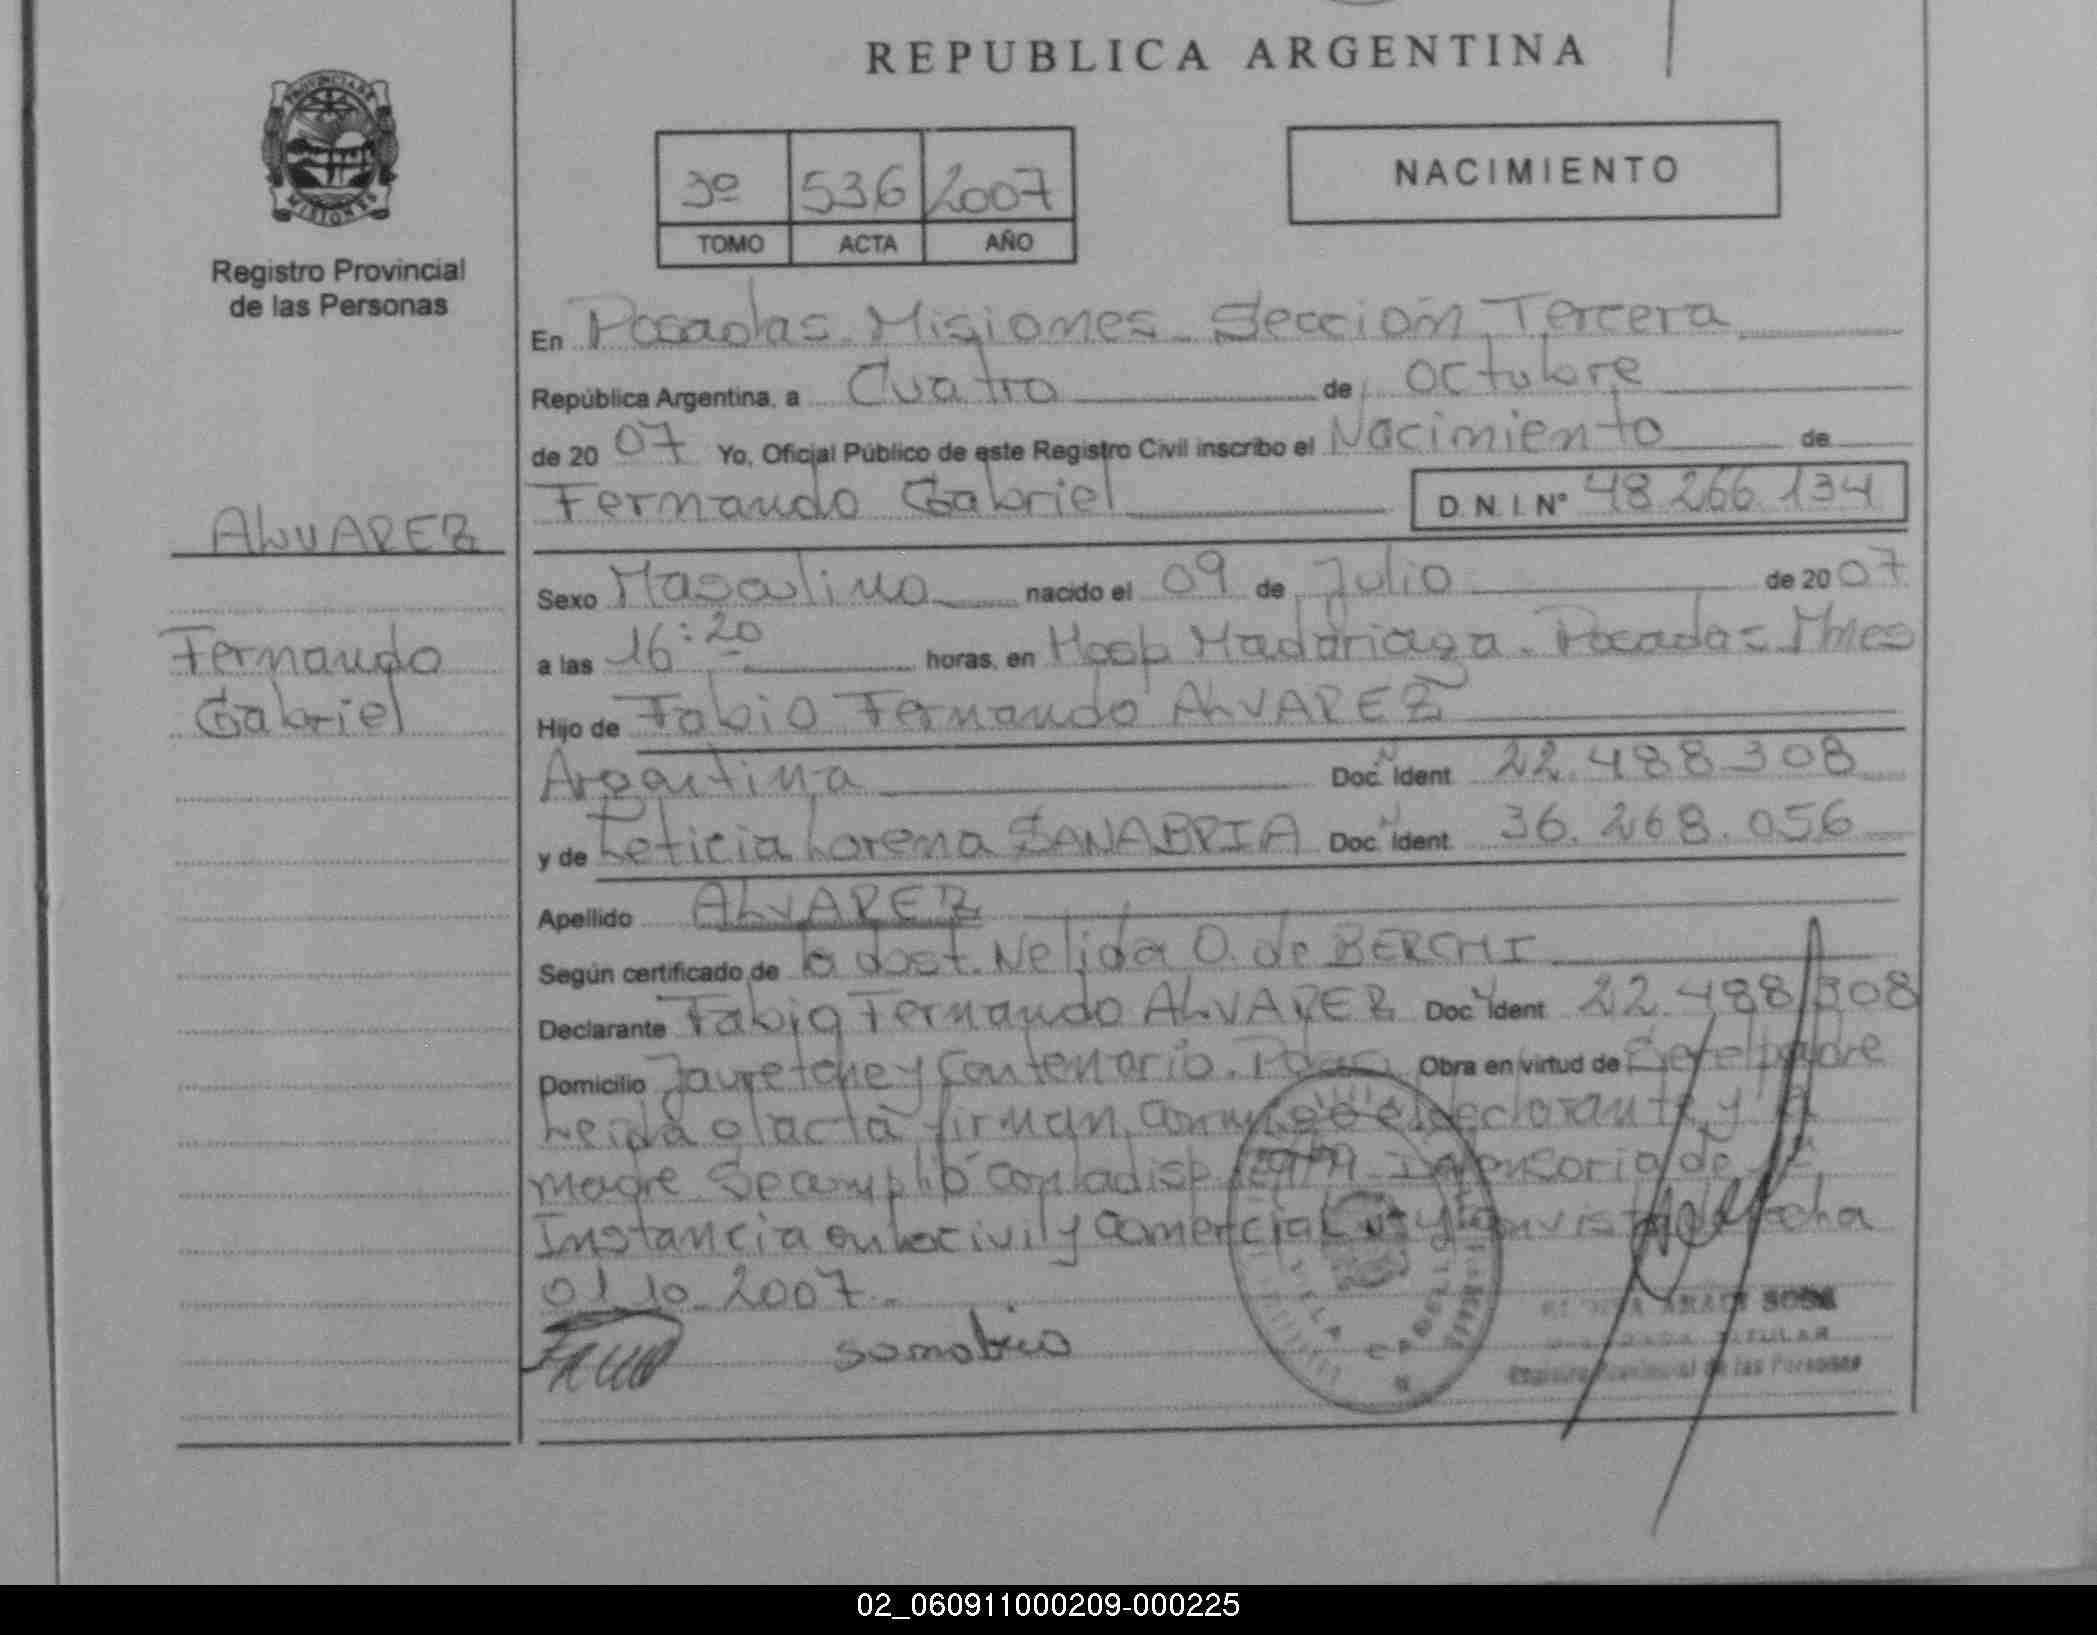 REPUBLICA ARGENTINA
PROVINCIA DE MISIONES
Registro Provincial
de las Personas
3º 536 2007
TOMO ACTA AÑO
NACIMIENTO
En Posadas Misiones Sección Tercera
República Argentina, a Cuatro de octubre
de 20 07 Yo, Oficial Público de este Registro Civil inscribo el Nacimiento de
Fernando Gabriel D.N.I. Nº 48.266.134
ALVAREZ
Fernando
Gabriel
Sexo Masculino nacido el 09 de Julio de 20 07
a las 16:20 horas, en Hosp Madariaga. Posadas Mnes
Hijo de Fabio Fernando ALVAREZ
Argentina Doc. Ident 22.488.308
y de Leticia Lorena SANABRIA Doc. Ident. 36.268.056
Apellido ALVAREZ
Según certificado de la obst. Nelida O. de BERCHI
Declarante Fabio Fernando ALVAREZ Doc. Ident 22.488.308
Domicilio Jauretche y Centenario. Pdas Obra en virtud de Ser el padre
Leida el acta firman conmigo el declarante y la
madre Se amplió con la disp. Defensoria de
Instancia en lo civil y Comercial fecha
01.10.2007.
sanabria
SOSA
TITULAR
Registro Provincial de las Personas
02_060911000209-000225